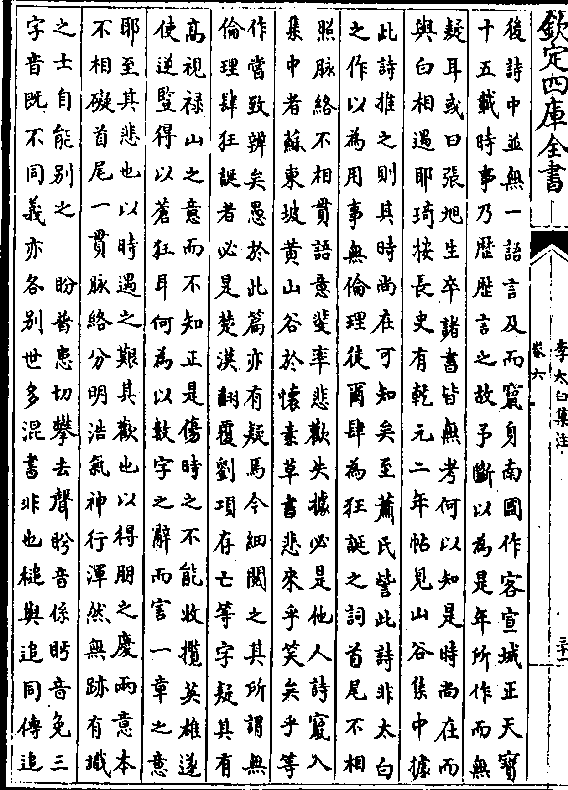 欽定四庫全書
李太白集注
卷六
後詩中並無一語言及而竄身南國作客宣城正天寶
十五載時事乃歷歷言之故予斷以為是年所作而無
疑耳或曰張旭生卒諸書皆無考何以知是時尚在而
與白相遇耶琦按長史有乾元二年帖見山谷集中據
此詩推之則其時尚在可知矣至蕭氏訾此詩非太白
之作以為用事無倫理徒爾肆為狂誕之詞首尾不相
照脉絡不相貫語意斐率悲歡失據必是他人詩竄入
集中者蘇東坡黄山谷於懷素草書悲來乎笑矣乎等
作嘗致辨矣愚於此篇亦有疑焉今細閲之其所謂無
倫理肆狂誕者必是楚漢翻覆劉項存亡等字疑其有
高視禄山之意而不知正是傷時之不能收攬英雄遂
使逆豎得以蒼狂耳何為以數字之辭而害一章之意
耶至其悲也以時遇之艱其歡也以得朋之慶兩意本
不相礙首尾一貫脉絡分明浩氣神行渾然無跡有識
之士自能别之 盼普患切攀去聲盻音係眄音免三
字音既不同義亦各别世多混書非也槌與追同傳追